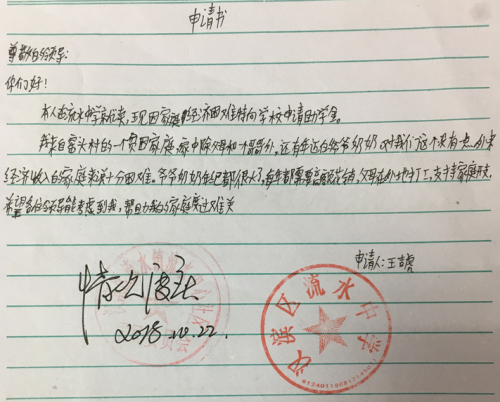 申请书
尊敬的领导:
你们好!
本人在流水中学就读,现因家庭经济困难特向学校申请助学金。
我来自窑头村的一个贫困家庭,家中除父母和一个弟弟外,还有年迈的爷爷奶奶,对我们这个没有一点
经济收入的家庭来说十分困难。爷爷奶奶年纪都很大了,每年都需要高额花销,父母在外地打工,支撑家庭开支,
希望各位领导能考虑到我,帮助我的家庭度过难关
申请人:王
情况属实
2018.10.22.
汉滨区流水中学